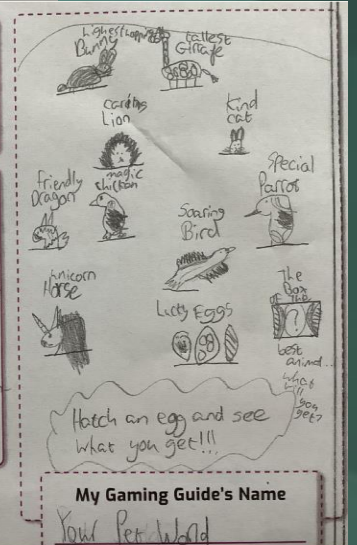 highest hopping
Bunny
tallest
Giraffe
caring
Lion
Kind
cat
magic
chickan
Special
Parrot
friendly
Dragon
Soaring
Bird
Unicorn
Horse
Lucky Eggs
The
Box
OF the
?
best
animal...
what
ll
you
get?
Hatch an egg and see
what you get!!!
My Gaming Guide's Name
Your Pet World